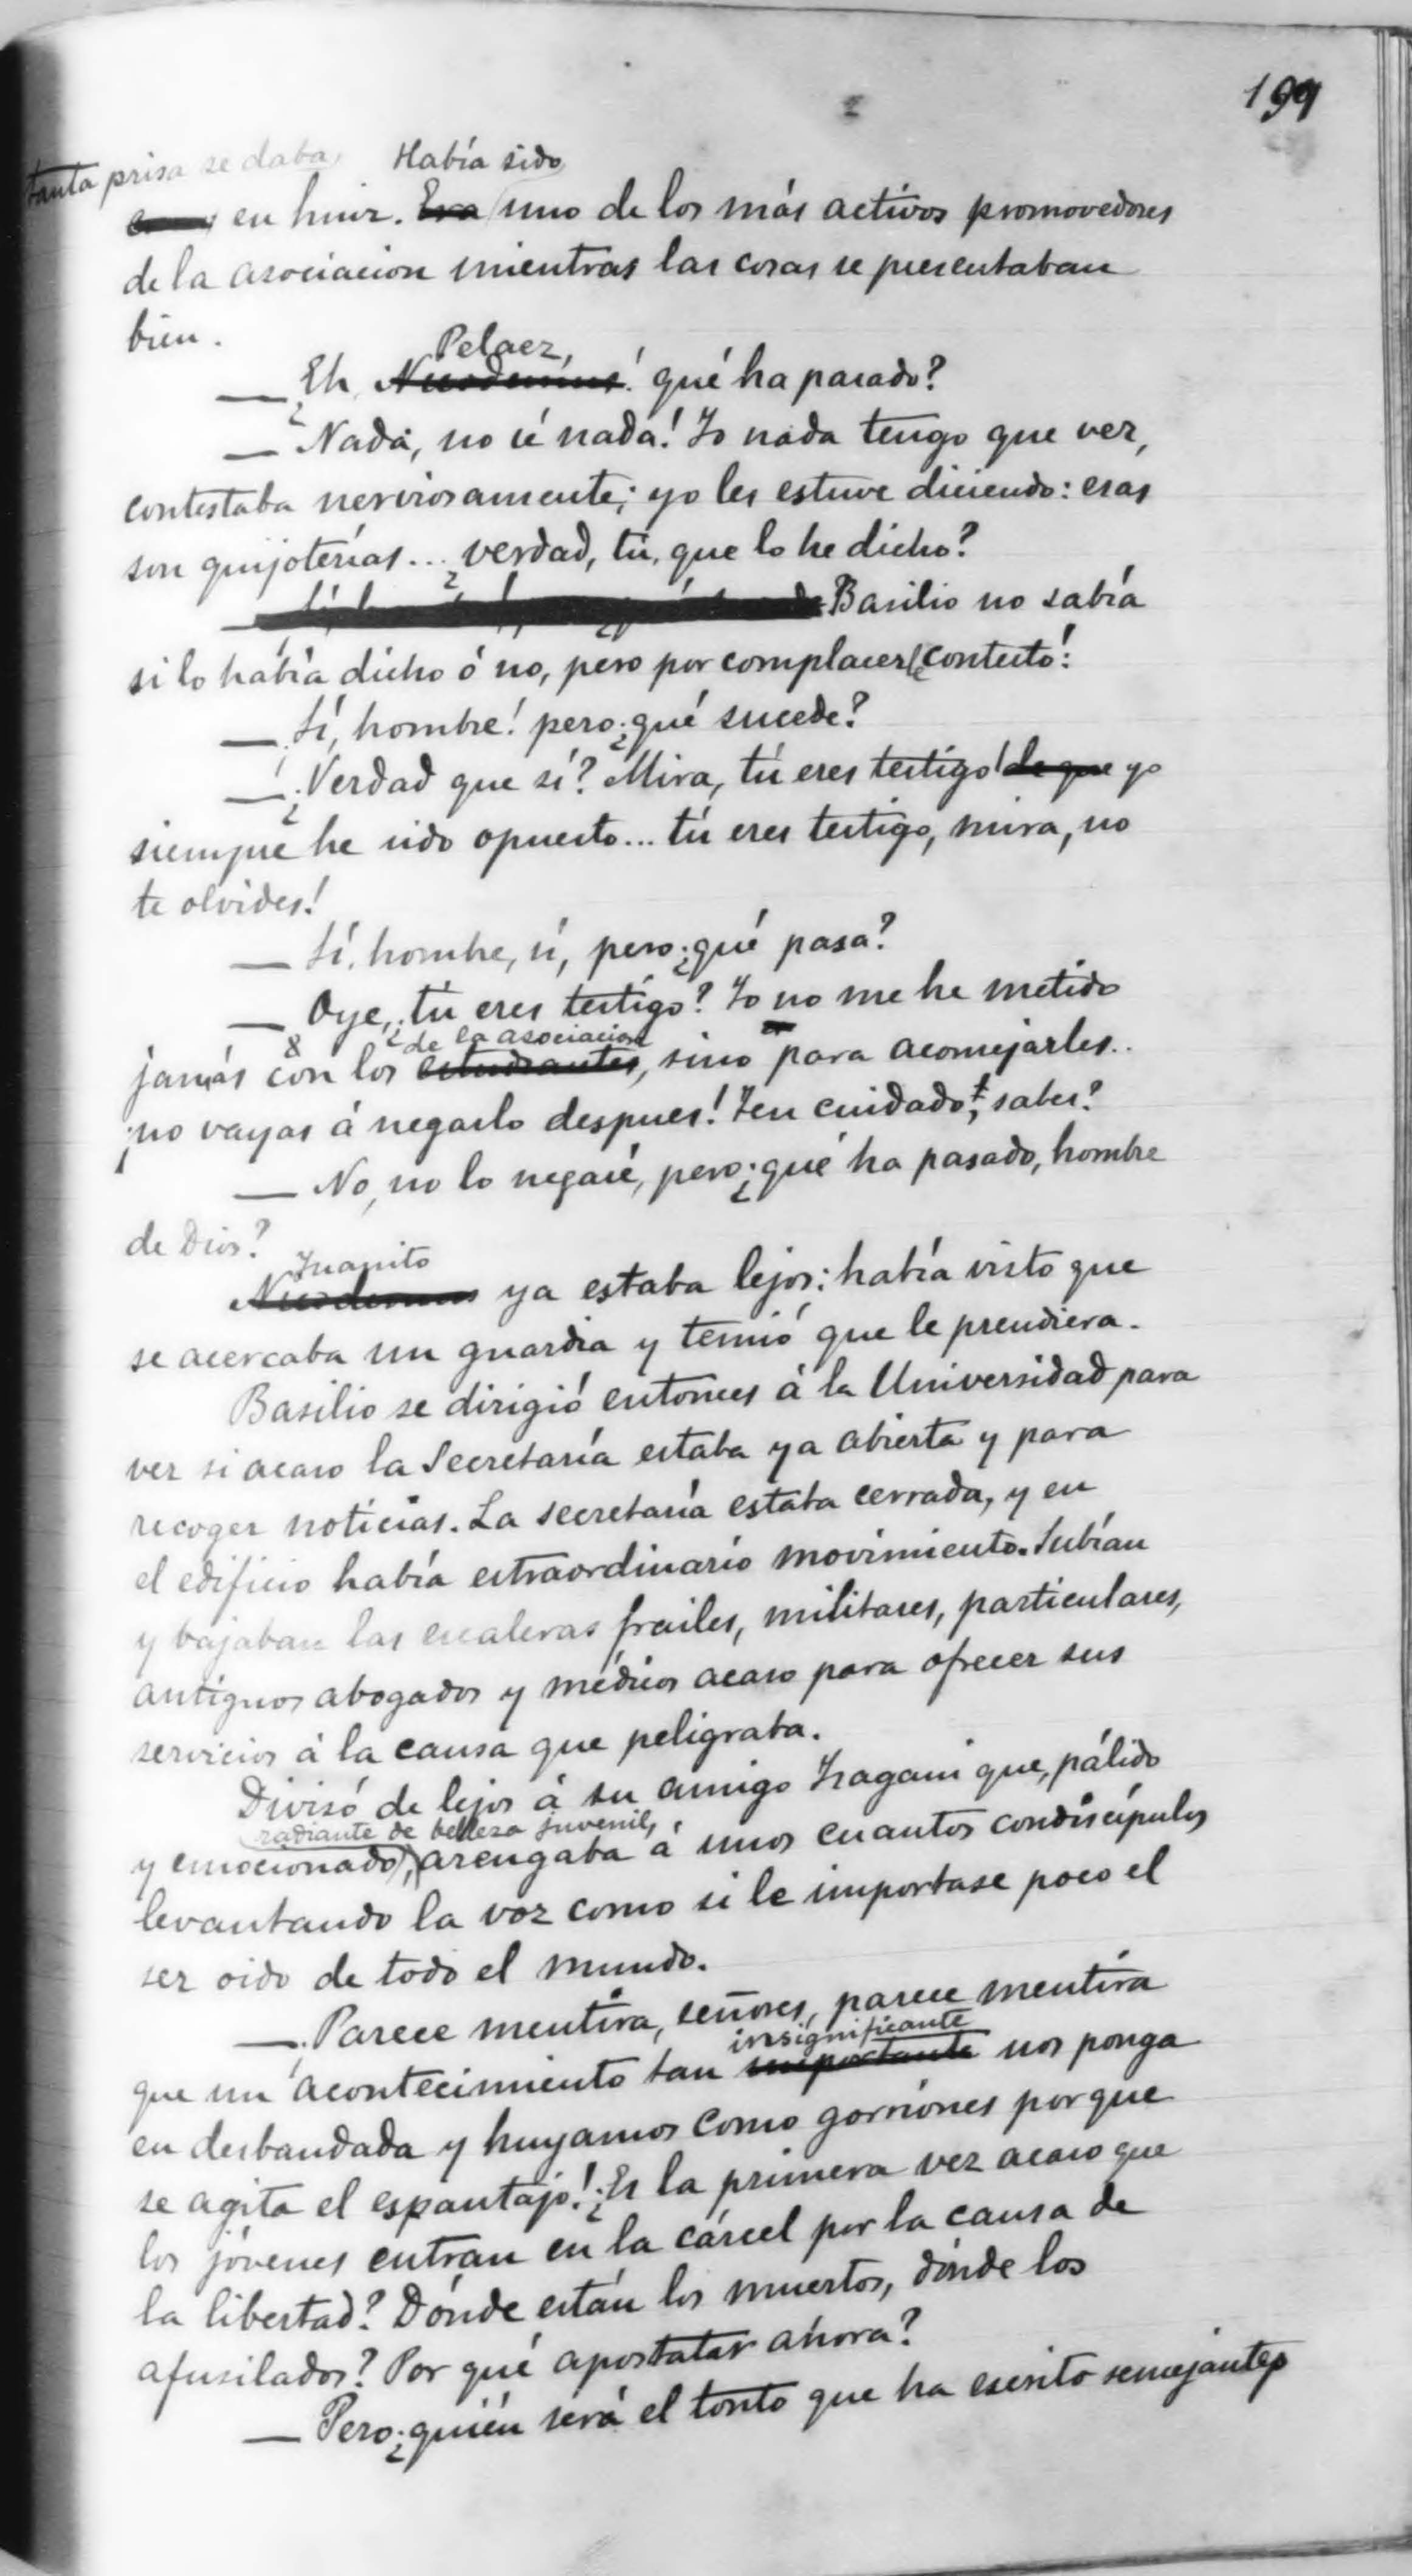 199
tanta prisa se daba, Había sido
en huir. Era uno de los más activos promovedores
de la asociacion mientras las cosas se presentaban
bien.
Pelaez,
— Eh, Nicodemus! ¿qué ha pasado?
— Nada, no sé nada! Yo nada tengo que ver,
contestaba nerviosamente; yo les estuve diciendo: esas
son quijoterías... ¿verdad, tú, que lo he dicho?
Basilio no sabía
si lo había dicho ó no, pero por complacerle contestó:
— ¡Sí, hombre! pero ¿qué sucede?
— ¿Verdad que sí? Mira, tú eres testigo! de que yo
siempre he sido opuesto... tú eres testigo, mira, no
te olvides!
— Sí, hombre, sí, pero ¿qué pasa?
— Oye, ¿tú eres testigo? Yo no me he metido
de la asociacion
jamás con los estudiantes, sino para aconsejarles..
¡no vayas á negarlo despues! Ten cuidado, ¿sabes?
— No, no lo negaré, pero ¿qué ha pasado, hombre
de Dios?
Juanito
Nicodemus ya estaba lejos: había visto que
se acercaba un guardia y temió que le prendiera.
Basilio se dirigió entonces á la Universidad para
ver si acaso la Secretaría estaba ya abierta y para
recoger noticias. La secretaría estaba cerrada, y en
el edificio había estraordinario movimiento. Subían
y bajaban las escaleras frailes, militares, particulares,
antiguos abogados y médicos acaso para ofrecer sus
servicios á la causa que peligraba.
Divisó de lejos á su amigo Isagani que, pálido
radiante de belleza juvenil,
y emocionado, arengaba á unos cuantos condiscípulos
levantando la voz como si le importase poco el
ser oido de todo el mundo.
— ¡Parece mentira, señores, parece mentira
insignificante
que un acontecimiento tan importante nos ponga
en desbandada y huyamos como gorriones porque
se agita el espantajo! ¿Es la primera vez acaso que
los jóvenes entran en la cárcel por la causa de
la libertad? Dónde están los muertos, dónde los
afusilados? Por qué apostatar ahora?
— Pero ¿quién será el tonto que ha escrito semejantes